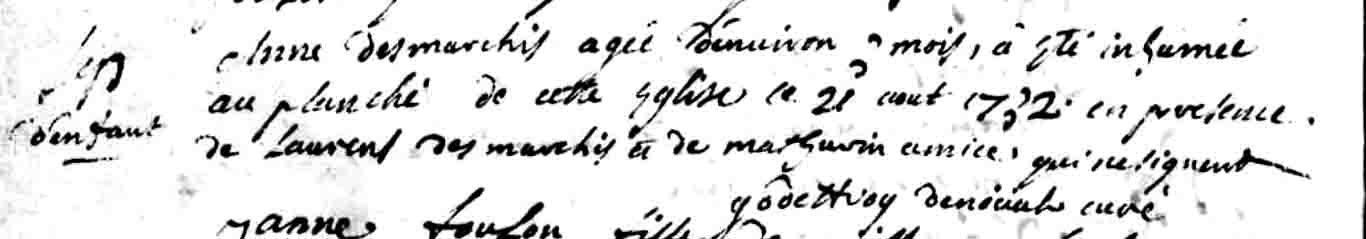 Sep
d'enfant
Anne desmarchis agée d'enuiron 2 mois, a été inhumée
au planché de cette Eglise le 21e aout 1732. en presence
de Laurens desmarchis et de mathurin amice, qui ne signent
curé
janne foulon fille